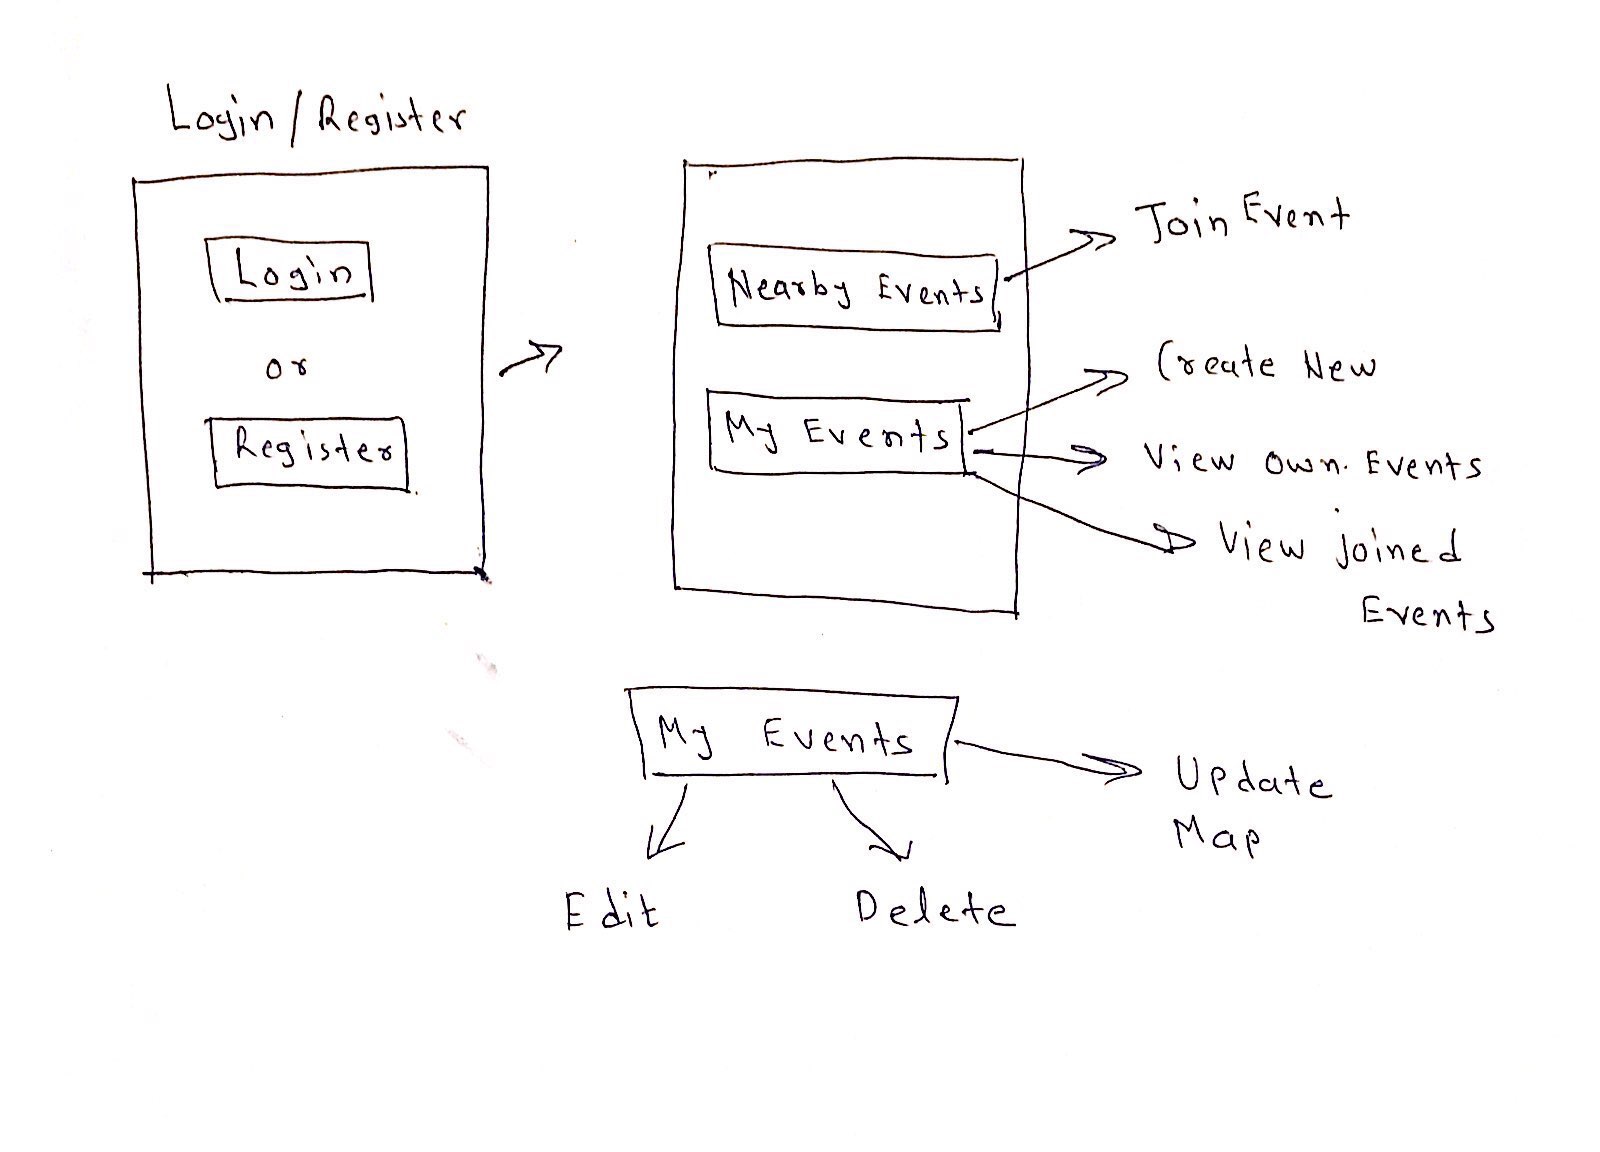 Login / Register
Login
or
Register
Nearby Events
My Events
Join Event
Create New
View own. Events
View joined
Events
My Events
Update
Map
Edit
Delete